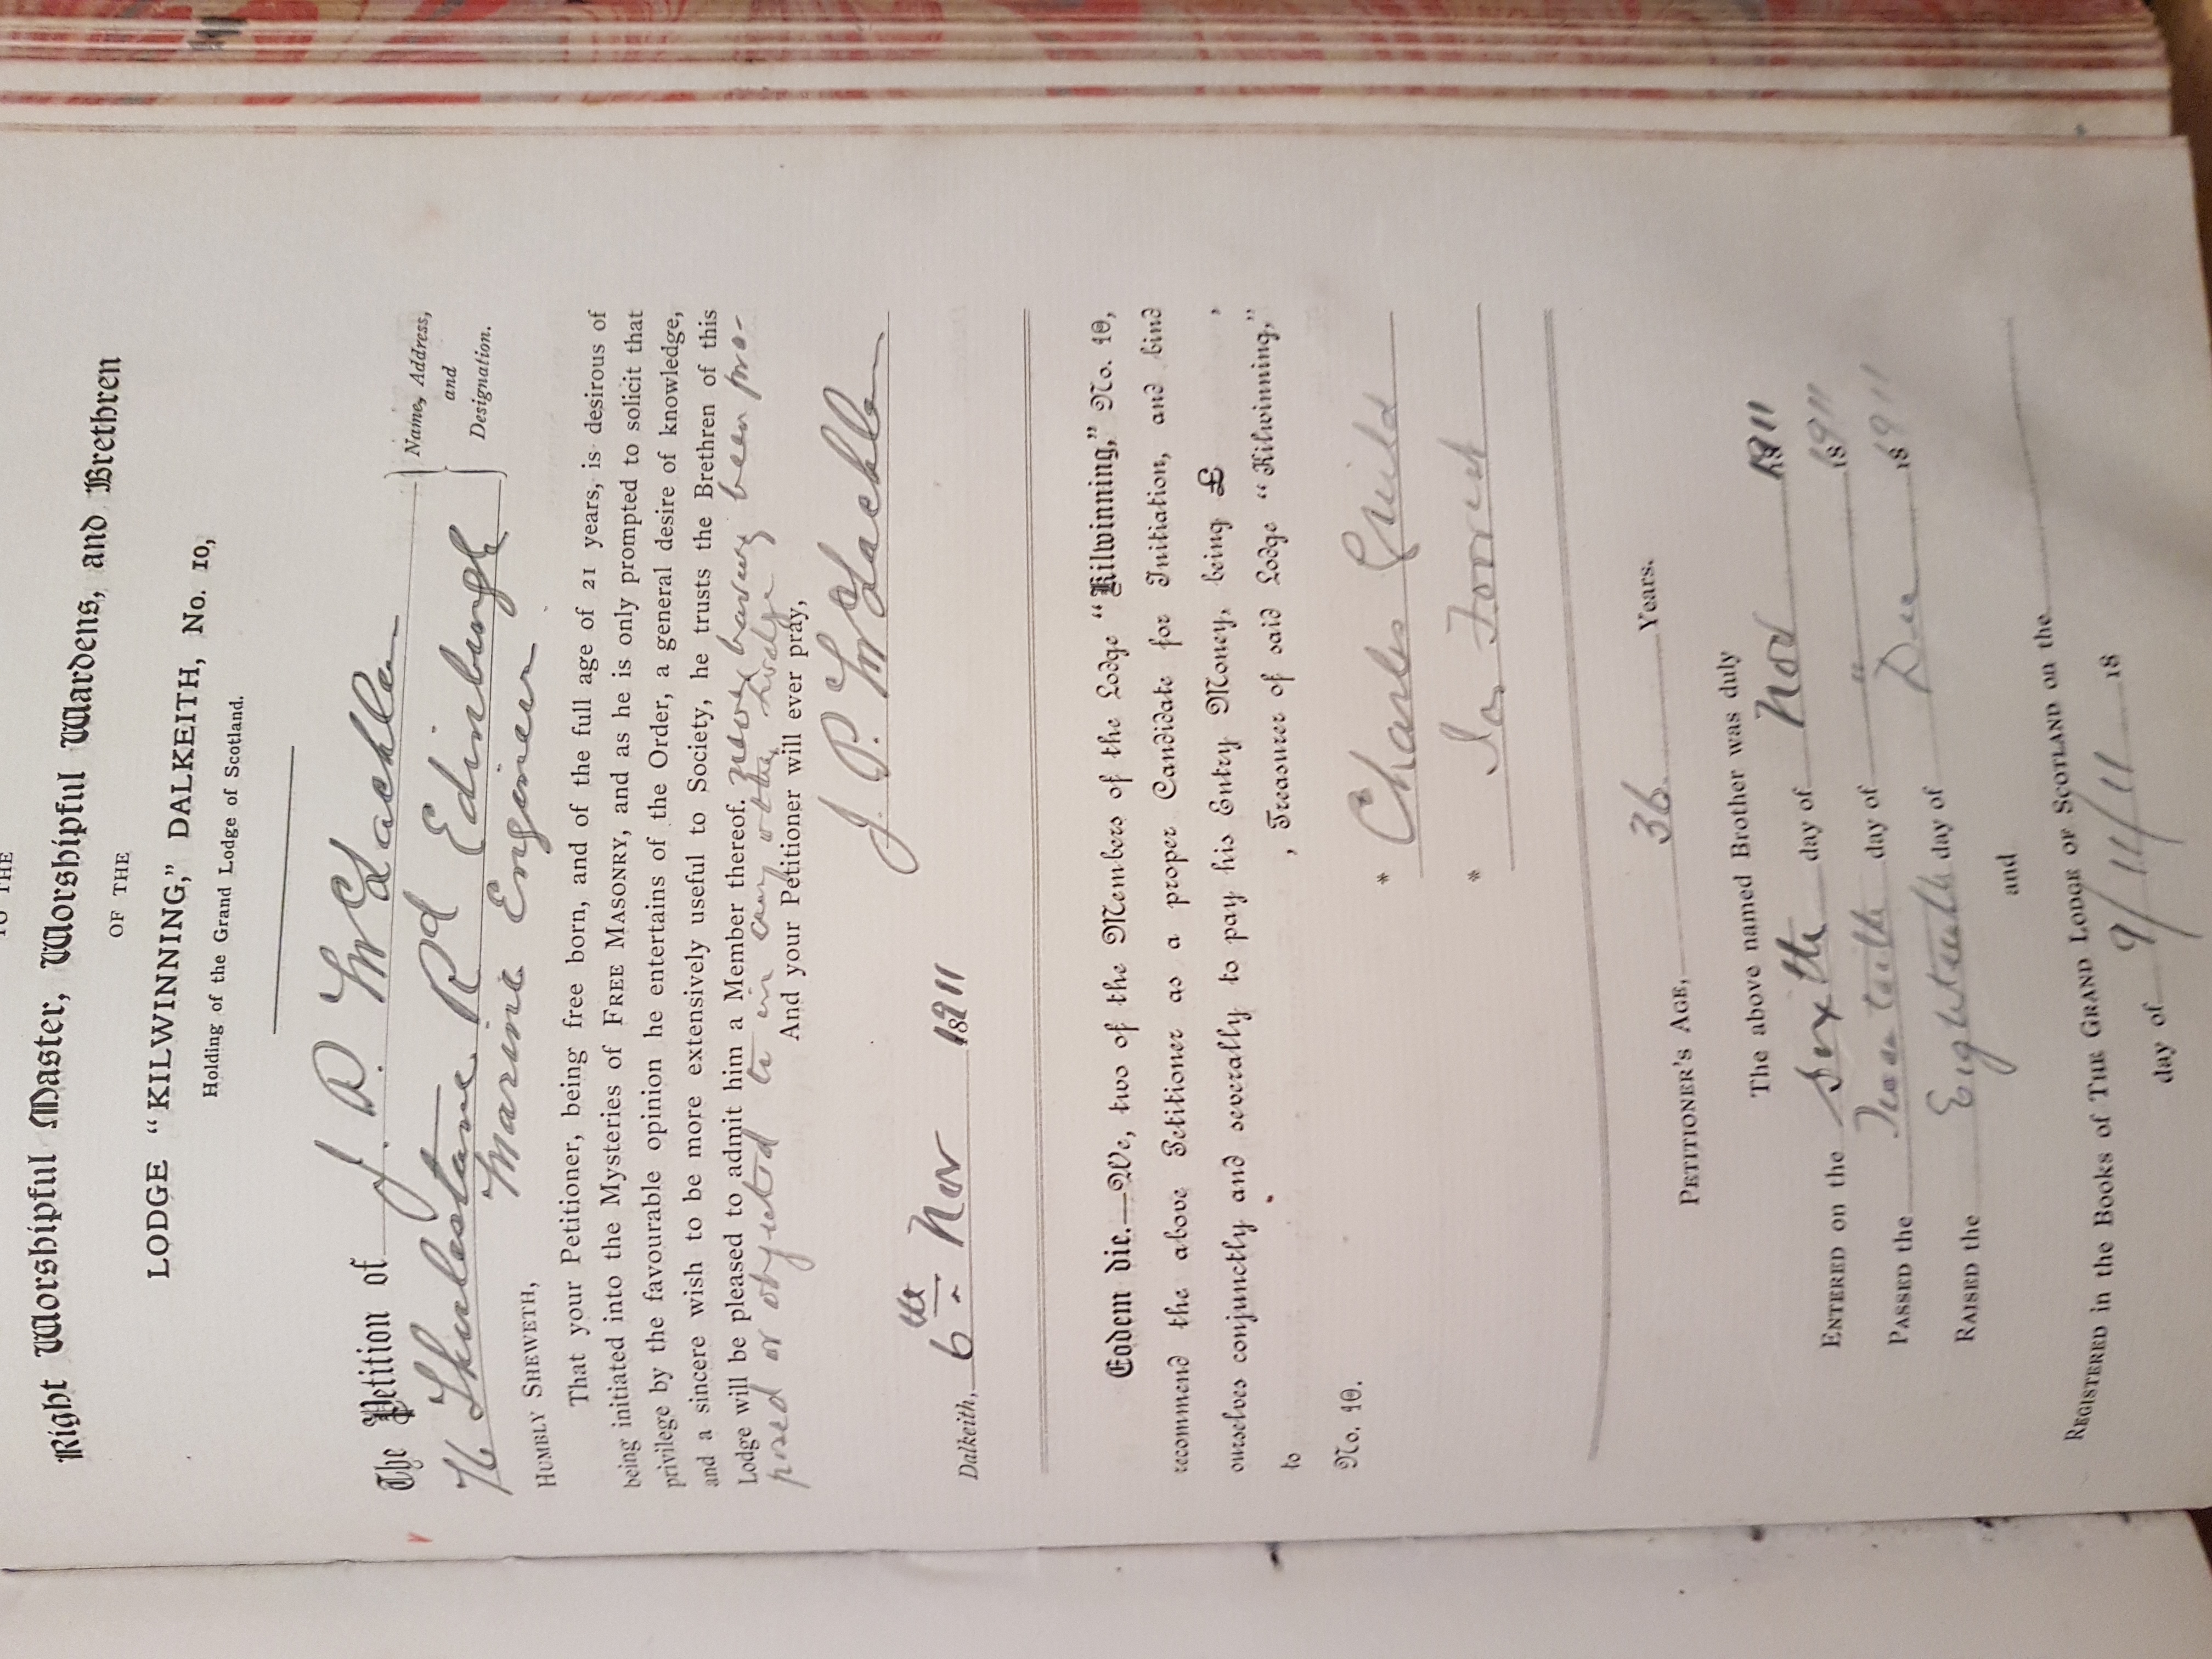 TO THE
Right Worshipful Master, Worshipful Wardens, and Brethren
OF THE
LODGE “KILWINNING,” DALKEITH, No. 10,
Holding of the Grand Lodge of Scotland.
The Petition of J. P. McLachlan
76 Thirlestane Rd Edinburgh
Marine Engineer
Name, Address,
and
Designation.
HUMBLY SHEWETH,
That your Petitioner, being free born, and of the full age of 21 years, is desirous of
being initiated into the Mysteries of FREE MASONRY, and as he is only prompted to solicit that
privilege by the favourable opinion he entertains of the Order, a general desire of knowledge,
and a sincere wish to be more extensively useful to Society, he trusts the Brethren of this
Lodge will be pleased to admit him a Member thereof. never having been pro-
posed or objected to in any other Lodge
And your Petitioner will ever pray,
J. P. McLachlan
Dalkeith, 6th Nov 1911
Eodem die.—We, two of the Members of the Lodge “Kilwinning,” No. 10,
recommend the above Petitioner as a proper Candidate for Initiation, and bind
ourselves conjunctly and severally to pay his Entry Money, being £ ,
to , Treasurer of said Lodge “Kilwinning,”
No. 10.
* Charles Guild
* Jas Forrest
PETITIONER'S AGE, 36 Years.
The above named Brother was duly
ENTERED on the Sixth day of Nov 1911
PASSED the day of " 1911
RAISED the Eighteenth day of Dec 1911
and
REGISTERED in the Books of THE GRAND LODGE OF SCOTLAND on the
day of 9/11/11 18